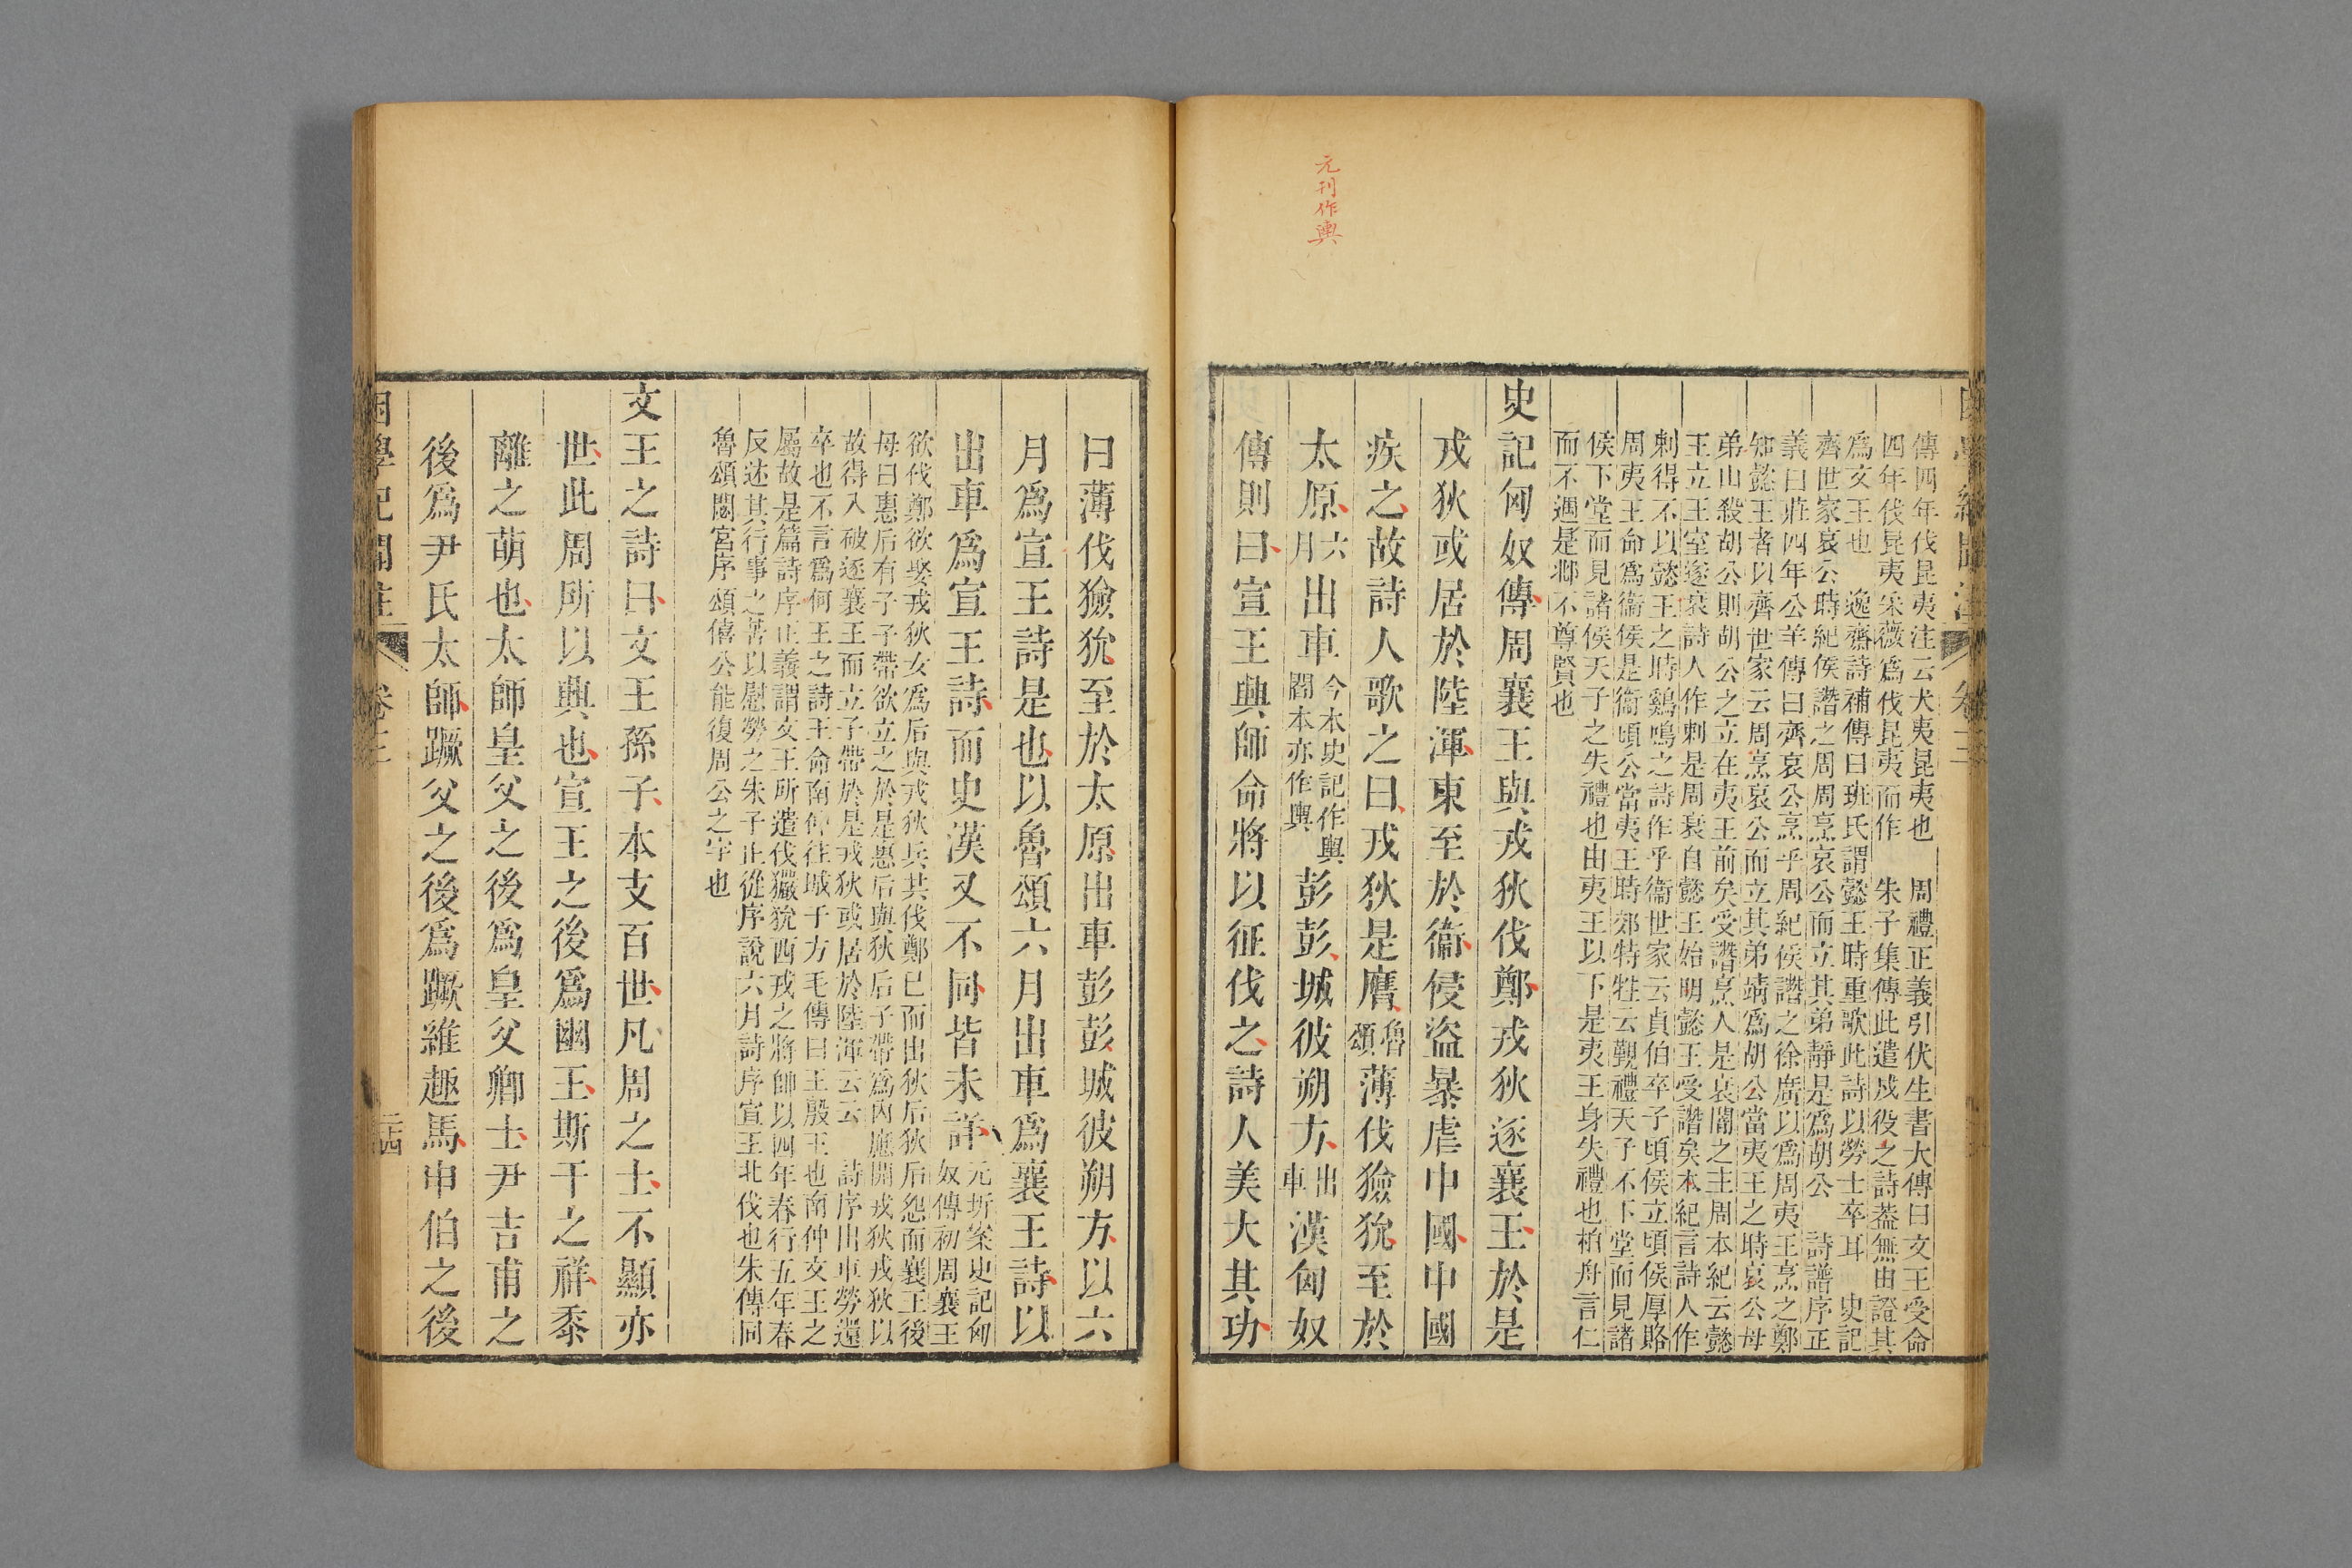 元刊作輿
傳四年伐昆夷注云犬夷昆夷也　周禮正義引伏生書大傳曰文王受命
四年伐昆夷采薇爲伐昆夷而作　朱子集傳此遣戍役之詩葢無由證其
爲文王也　逸齋詩補傳曰班氏謂懿王時重歌此詩以勞士卒耳　史記
齊世家哀公時紀侯譖之周周烹哀公而立其弟靜是爲胡公　詩譜序正
義曰莊四年公羊傳曰齊哀公烹乎周紀侯譖之徐廣以爲周夷王烹之鄭
知懿王者以齊世家云周烹哀公而立其弟靖爲胡公當夷王之時哀公母
弟山殺胡公則胡公之立在夷王前矣受譖烹人是哀闇之主周本紀云懿
王立王室遂衰詩人作刺是周衰自懿王始明懿王受譖矣本紀言詩人作
刺得不以懿王之時雞鳴之詩作乎衞世家云貞伯卒子頃侯立頃侯厚賂
周夷王命爲衞侯是衞頃公當夷王時郊特牲云覲禮天子不下堂而見諸
侯下堂而見諸侯天子之失禮也由夷王以下是夷王身失禮也柏舟言仁
而不遇是邶不尊賢也
史記匈奴傳周襄王與戎狄伐鄭戎狄逐襄王於是
戎狄或居於陸渾東至於衞侵盜暴虐中國中國
疾之故詩人歌之曰戎狄是膺魯頌薄伐獫狁至於
太原六月出車今本史記作輿閻本亦作輿彭彭城彼朔方出車漢匈奴
傳則曰宣王興師命將以征伐之詩人美大其功
曰薄伐獫狁至於太原出車彭彭城彼朔方以六
月爲宣王詩是也以魯頌六月出車爲襄王詩以
出車爲宣王詩而史漢又不同皆未詳元圻案史記匈奴傳初周襄王
欲伐鄭欲娶戎狄女爲后與戎狄兵共伐鄭已而出狄后狄后怨而襄王後
母曰惠后有子子帶欲立之於是惠后與狄后子帶爲內應開戎狄戎狄以
故得入破逐襄王而立子帶於是戎狄或居於陸渾云云　詩序出車勞還
卒也不言爲何王之詩王命南仲往城于方毛傳曰王殷王也南仲文王之
屬故是篇詩序正義謂文王所遣伐玁狁西戎之將帥以四年春行五年春
反述其行事之苦以慰勞之朱子止從序說六月詩序宣王北伐也朱傳同
魯頌閟宮序頌僖公能復周公之宇也
文王之詩曰文王孫子本支百世凡周之士不顯亦
世此周所以興也宣王之後爲幽王斯干之祥黍
離之萌也太師皇父之後爲皇父卿士尹吉甫之
後爲尹氏太師蹶父之後爲蹶維趣馬申伯之後
困學紀聞注　卷三